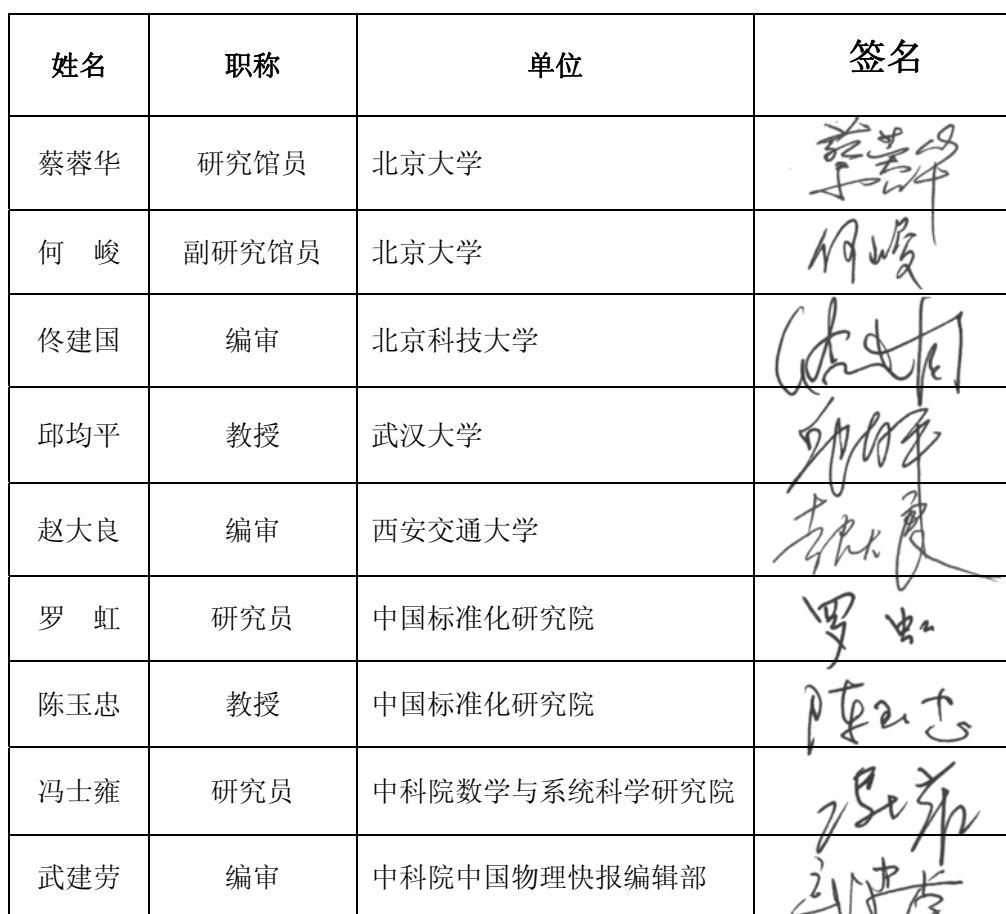 姓名 职称 单位 签名
蔡蓉华 研究馆员 北京大学 蔡蓉华
何 峻 副研究馆员 北京大学 何峻
佟建国 编审 北京科技大学
邱均平 教授 武汉大学 邱均平
赵大良 编审 西安交通大学 赵大良
罗 虹 研究员 中国标准化研究院 罗虹
陈玉忠 教授 中国标准化研究院 陈玉忠
冯士雍 研究员 中科院数学与系统科学研究院 冯士雍
武建劳 编审 中科院中国物理快报编辑部